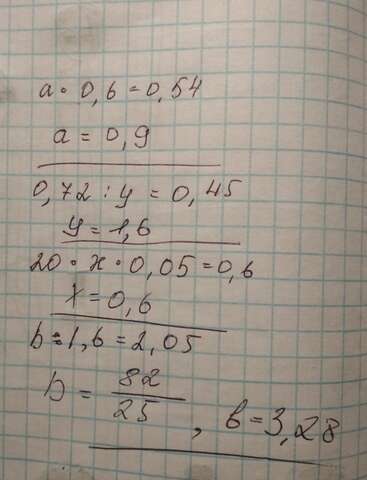 a • 0,6 = 0,54
a = 0,9
0,72 : y = 0,45
y = 1,6
20 • x • 0,05 = 0,6
x = 0,6
b : 1,6 = 2,05
b = 82/25 , b = 3,28